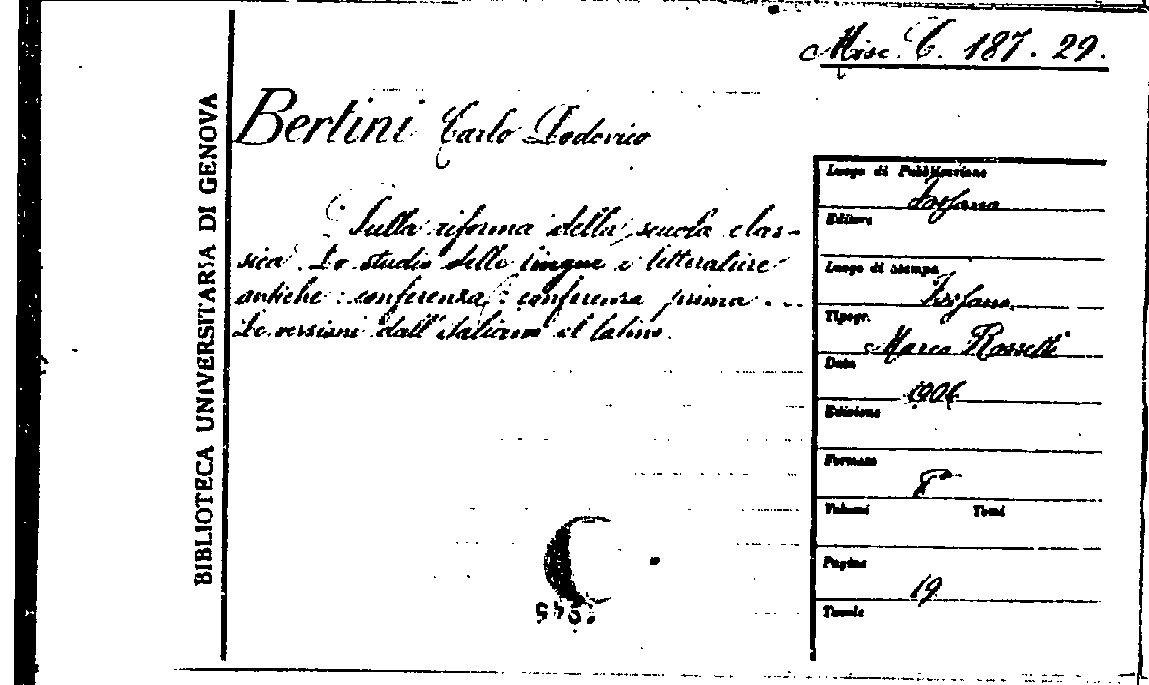 Misc. C. 187. 29.
BIBLIOTECA UNIVERSITARIA DI GENOVA
Bertini Carlo Lodovico
Sulla riforma della scuola clas-
sica. Lo studio delle lingue e letterature
antiche: conferenza: conferenza prima ...
Le versioni dall'italiano al latino.
Luogo di Pubblicazione
Editore
Luogo di stampa
Tipogr.
Marco Rosselli
Data
Edizione
Formato
8°
Volumi Tomi
Pagine
19
Tavole